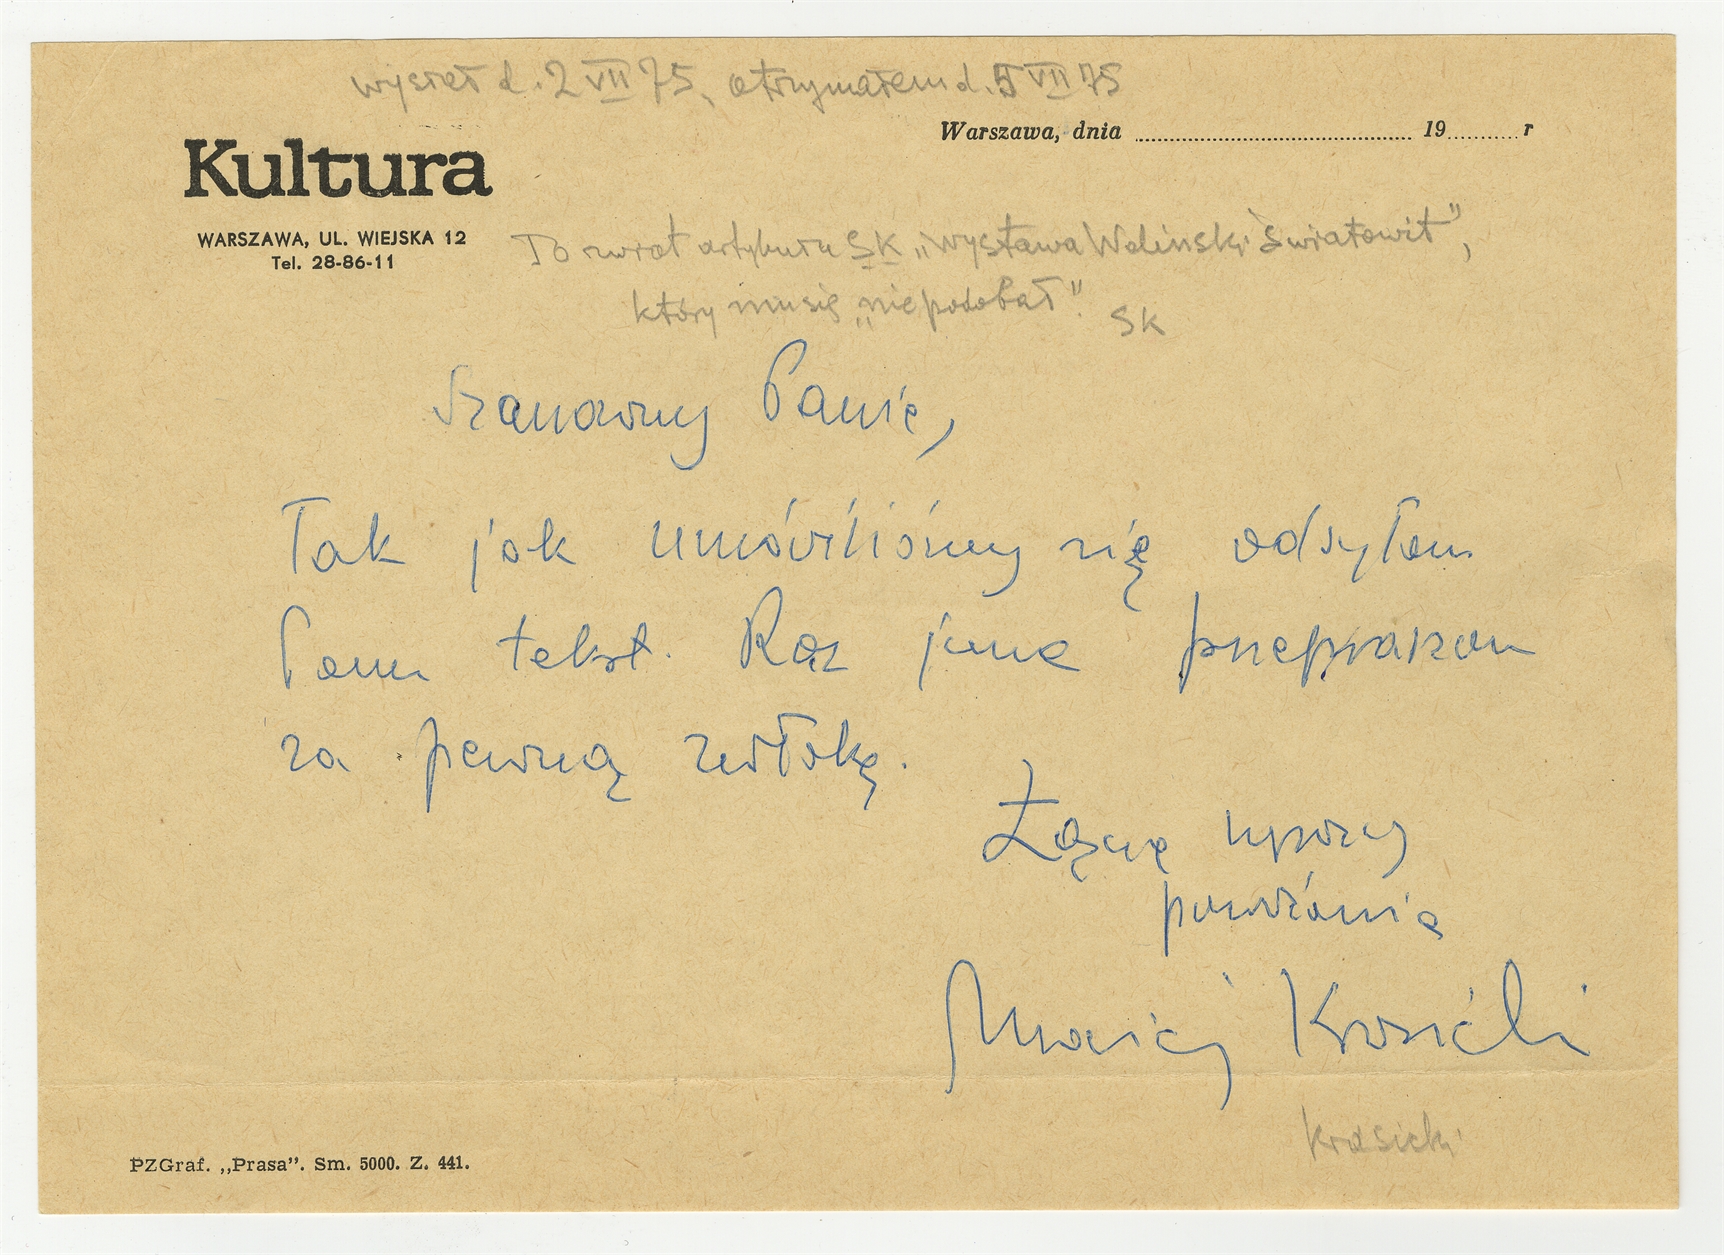 wysłał d. 2 VII 75, otrzymałem d. 5 VII 75
Warszawa, dnia ........................ 19........ r
Kultura
WARSZAWA, UL. WIEJSKA 12
Tel. 28-86-11
To zwrot artykułu SK „Wystawa Woliński Światowit”,
który mu się „nie podobał”. SK
Szanowny Panie,
Tak jak umówiliśmy się odsyłam
Panu tekst. Raz jeszcze przepraszam
za pewną zwłokę.
Łączę wyrazy
poważania
Maciej Krasicki
Krasicki
PZGraf. „Prasa”. Sm. 5000. Z. 441.